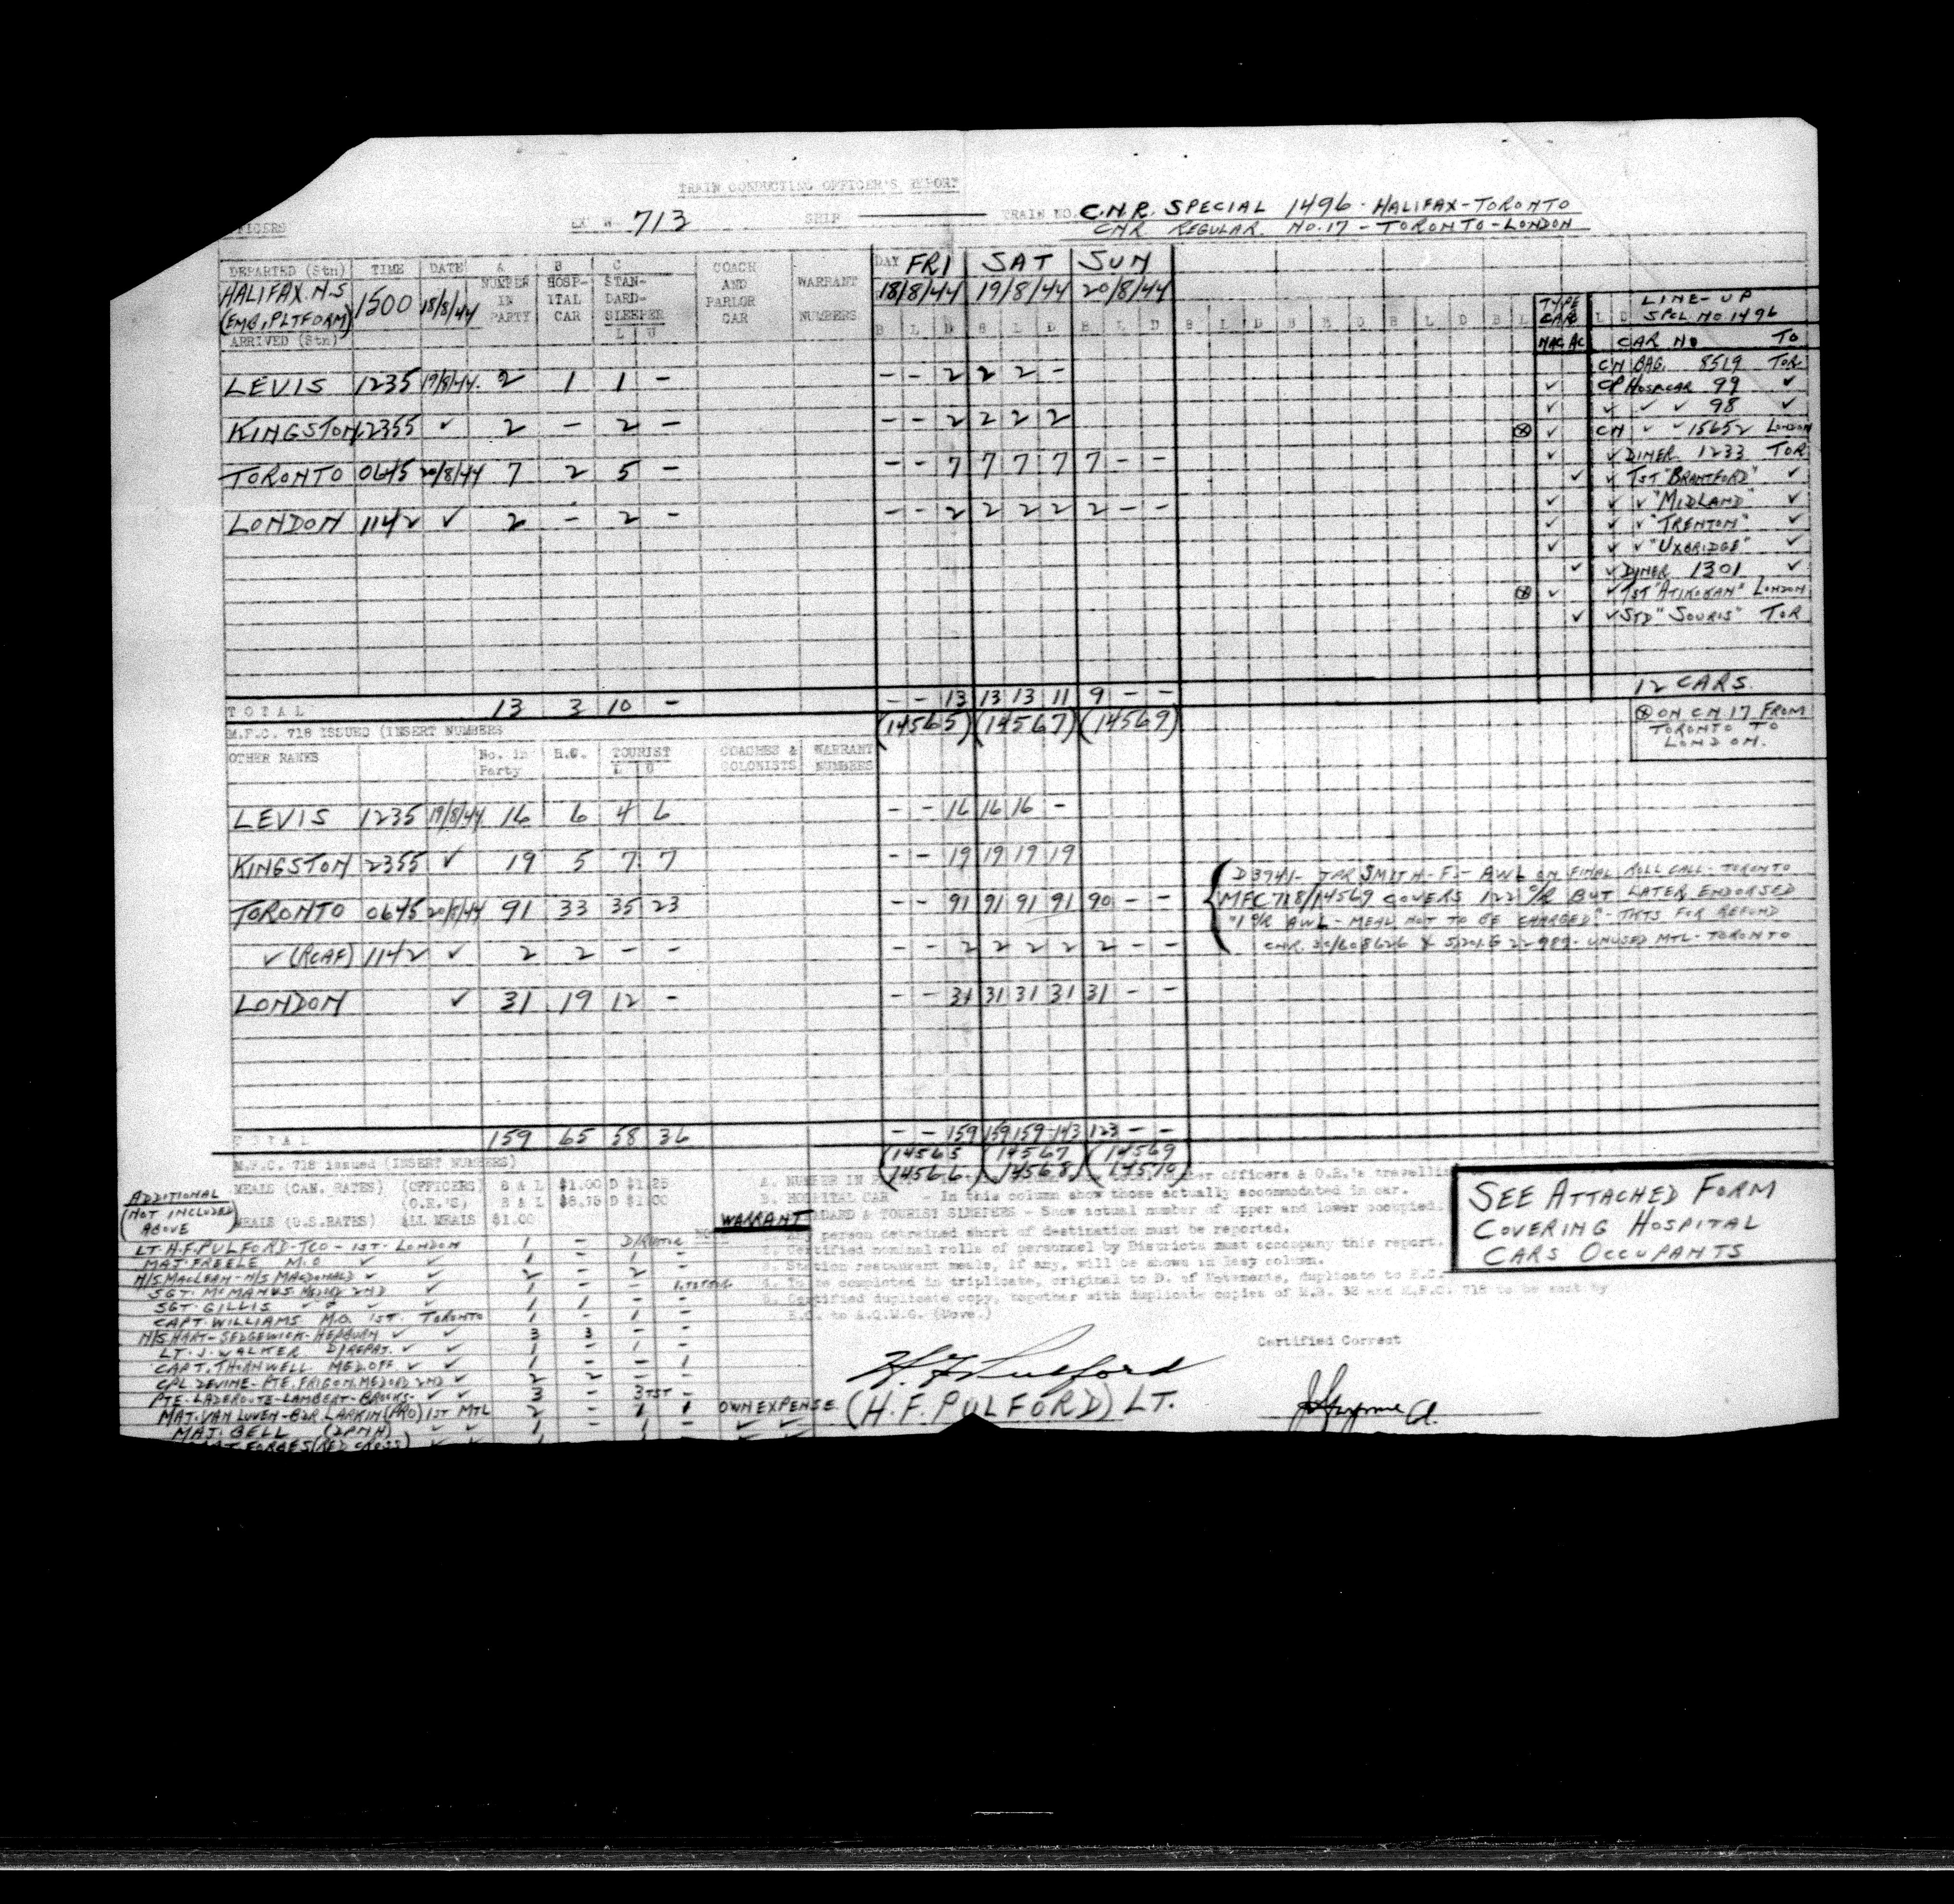 TRAIN CONDUCTING OFFICER'S REPORT
OFFICERS 713 SHIP TRAIN NO. C.N.R. SPECIAL 1496 - HALIFAX - TORONTO
CNR REGULAR. NO. 17 - TORONTO - LONDON
DEPARTED (Stn) TIME DATE A B C COACH WARRANT DAY FRI SAT SUN
HALIFAX. N.S 1500 18/8/44 NUMBER HOSP- STAN- AND 18/8/44 19/8/44 20/8/44 TYPE LINE-UP
(EMB, PLTFORM) IN ITAL DARD- PARLOR CAR SPCL NO. 1496
PARTY CAR SLEEPER CAR NUMBERS
ARRIVED (Stn) L U B L D B L D B L D B L D NAC AC CAR NO TO
CN BAG. 8519 TOR.
LEVIS 1235 19/8/44. 2 1 1 - - - 2 2 2 - ✓ CP HOSP.CAR 99 ✓
✓ ✓ ✓ ✓ 98 ✓
KINGSTON 2355 ✓ 2 - 2 - - - 2 2 2 2 ⊗ ✓ CN ✓ ✓ 15652 LONDON
✓ ✓ DINER 1233 TOR
TORONTO 0645 20/8/44 7 2 5 - - - 7 7 7 7 7 - - ✓ ✓ TST "BRANTFORD" ✓
✓ ✓ ✓ "MIDLAND" ✓
LONDON 1142 ✓ 2 - 2 - - - 2 2 2 2 2 - - ✓ ✓ ✓ "TRENTON" ✓
✓ ✓ ✓ "UXBRIDGE" ✓
✓ ✓ DINER 1301 ✓
⊗ ✓ ✓ TST "ATIKOKAN" LONDON
✓ ✓ STD "SOURIS" TOR
12 CARS.
TOTAL 13 3 10 - - - 13 13 13 11 9 - -
M.F.C. 718 ISSUED (INSERT NUMBERS (14565) (14567) (14569)
⊗ ON CN 17 FROM
TORONTO TO
LONDON.
OTHER RANKS No. in H.C. TOURIST COACHES & WARRANT
Party L U COLONISTS NUMBERS
LEVIS 1235 19/8/44 16 6 4 6 - - 16 16 16 -
KINGSTON 2355 ✓ 19 5 7 7 - - 19 19 19 19
D3941 - TPR SMITH - F. - AWL ON FINAL ROLL CALL - TORONTO
TORONTO 0645 20/8/44 91 33 35 23 - - 91 91 91 91 90 - - MFC 718/14569 COVERS 122 O/R BUT LATER ENDORSED
"1 O/R AWL - MEAL NOT TO BE CHARGED" - TKTS FOR REFUND
✓ (RCAF) 1142 ✓ 2 2 - - - - 2 2 2 2 2 - - UNUSED MTL - TORONTO
LONDON ✓ 31 19 12 - - - 31 31 31 31 31 - -
TOTAL 159 65 58 36 - - 159 159 159 143 123 - -
M.F.C. 718 issued (INSERT NUMBERS) (14565 (14567 (14569
14566) 14568) 14570)
MEALS (CAN. RATES) (OFFICERS) B & L $1.00 D $1.25
(O.R.'S) B & L D $1.00
MEALS (U.S. RATES) ALL MEALS $1.00
A. NUMBER IN officers & O.R.'s
B. HOSPITAL CAR - In this column show those actually accommodated in car.
& TOURIST SLEEPERS - Show actual number of upper and lower occupied.
WARRANT
NOTE
Any person detrained short of destination must be reported.
2. Certified nominal rolls of personnel by Districts must accompany this report.
3. Station restaurant meals, if any, will be shown in last column.
4. To be completed in triplicate, original to D. of Movements, duplicate to
5. Certified duplicate copy, together with duplicate copies of and M.F.C. 718 to be sent by
to A.Q.M.G. (Move.)
SEE ATTACHED FORM
COVERING HOSPITAL
CARS OCCUPANTS
ADDITIONAL
(NOT INCLUDED
ABOVE)
LT. H.F. PULFORD - TCO - 1ST. LONDON 1 -
MAJ. FREELE M.O ✓ ✓ 1 - 1 -
N/S MACLEAN - N/S MACDONALD ✓ ✓ 2 - 2 -
SGT. McMANUS 2ND ✓ 1 - -
SGT. GILLIS ✓ ✓ 1 1 - -
CAPT. WILLIAMS M.O. 1ST. TORONTO 1 - 1 -
N/S HART - SEDGEWICK - HEPBURN ✓ ✓ 3 3 - -
LT. J. WALKER ✓ ✓ 1 - 1 -
CAPT. THORNWELL MED.OFF. ✓ ✓ 1 - - 1
CPL DEVINE - PTE. FRIGON. 2ND ✓ 2 2 - -
PTE. LADEROUTE - LAMBERT - BROOKS - ✓ ✓ 3 - 3 TST -
MAJ. VAN LUVEN - BDR LARKIN (PRO) 1ST MTL 2 - 1 1 OWN EXPENSE
MAJ. BELL ✓ ✓ 1 - 1 - ✓ ✓
FORBES (RED CROSS) ✓ ✓
Certified Correct
H F Pulford
(H. F. PULFORD) LT.